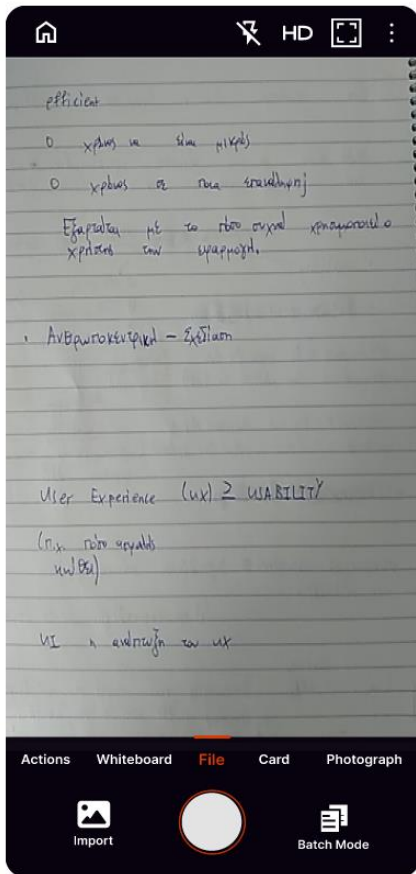 HD
efficient
Ο χρόνος να είναι μικρός
Ο χρόνος σε ποια επανάληψη
Εξαρτάται με το πόσο συχνά χρησιμοποιεί ο
χρήστης την εφαρμογή.
Ανθρωποκεντρική - Σχεδίαση
User Experience (UX) ≥ USABILITY
(π.χ. πόσο ασφαλής
νιώθει)
UI η ανάπτυξη του UX
Actions Whiteboard File Card Photograph
Import
Batch Mode